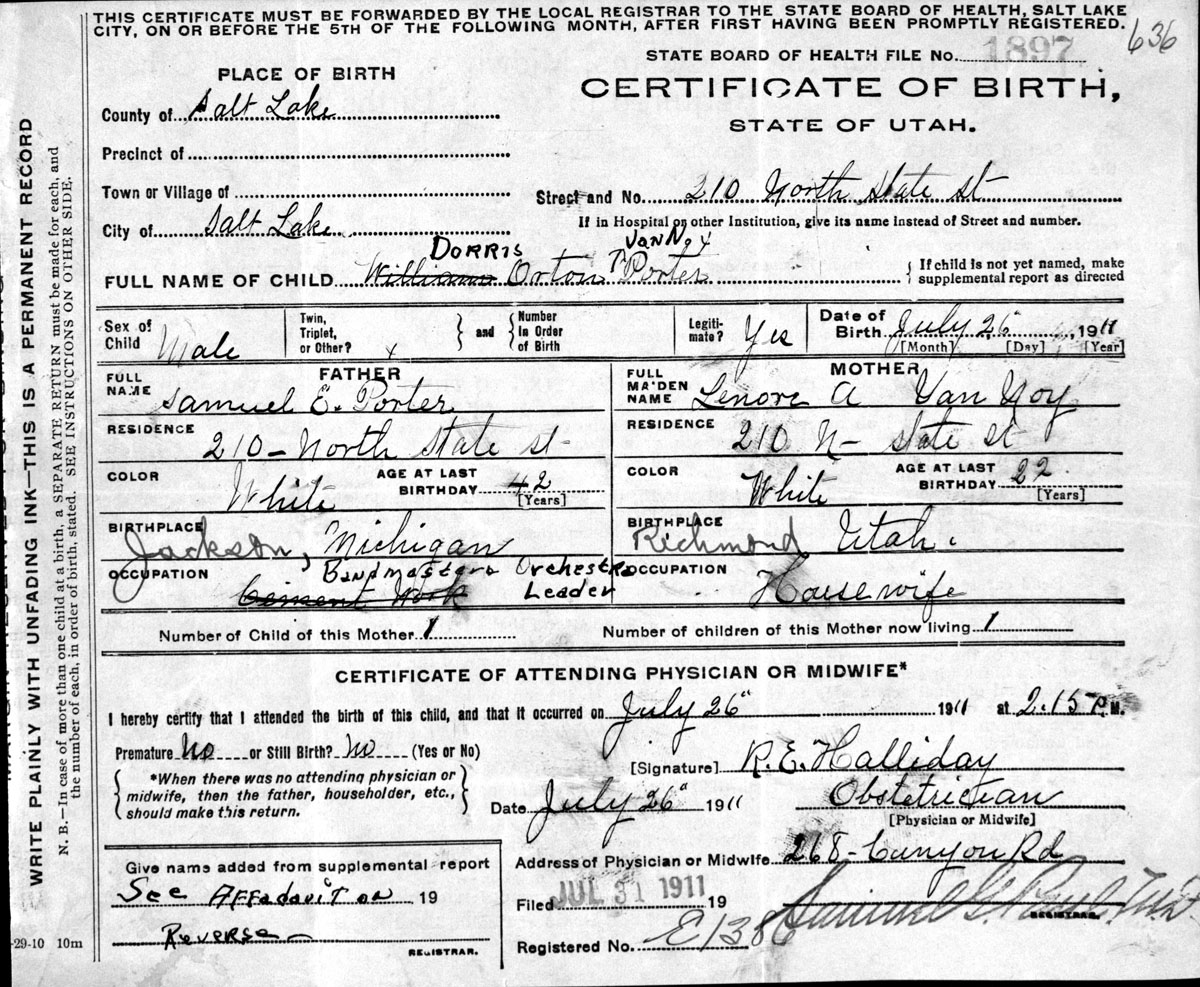 THIS CERTIFICATE MUST BE FORWARDED BY THE LOCAL REGISTRAR TO THE STATE BOARD OF HEALTH, SALT LAKE
CITY, ON OR BEFORE THE 5TH OF THE FOLLOWING MONTH, AFTER FIRST HAVING BEEN PROMPTLY REGISTERED.
636
STATE BOARD OF HEALTH FILE No. 1897
CERTIFICATE OF BIRTH,
STATE OF UTAH.
PLACE OF BIRTH
County of Salt Lake
Precinct of
Town or Village of
Street and No. 210 North State st
City of Salt Lake
If in Hospital or other Institution, give its name instead of Street and number.
DORRIS VanNoy
FULL NAME OF CHILD William Orton Porter
If child is not yet named, make
supplemental report as directed
Sex of Child Male
Twin, Triplet, or Other? x
and
Number in Order of Birth
Legiti-mate? Yes
Date of Birth July 26, 1911
[Month] [Day] [Year]
FATHER
FULL NAME Samuel E. Porter
RESIDENCE 210 - North State st
COLOR White
AGE AT LAST BIRTHDAY 42
[Years]
BIRTHPLACE Jackson, Michigan
OCCUPATION Bandmaster Orchestra
Cement Work Leader
MOTHER
FULL MAIDEN NAME Lenore A Van Noy
RESIDENCE 210 N- State st
COLOR White
AGE AT LAST BIRTHDAY 22
[Years]
BIRTHPLACE Richmond Utah.
OCCUPATION House wife
Number of Child of this Mother 1
Number of children of this Mother now living 1
CERTIFICATE OF ATTENDING PHYSICIAN OR MIDWIFE*
I hereby certify that I attended the birth of this child, and that it occurred on July 26" 1911 at 2.15 P.M.
Premature No or Still Birth? No (Yes or No)
*When there was no attending physician or
midwife, then the father, householder, etc.,
should make this return.
[Signature] R.E. Halliday
Date July 26" 1911 Obstetrician
[Physician or Midwife]
Address of Physician or Midwife 268 - Canyon Rd
Give name added from supplemental report
See Affadavit on 19
Reverse
REGISTRAR.
Filed JUL 31 1911 19
Samuel G. Paul
REGISTRAR.
Registered No. E1386
-29-10 10m
WRITE PLAINLY WITH UNFADING INK—THIS IS A PERMANENT RECORD
N. B.—In case of more than one child at a birth, a SEPARATE RETURN must be made for each, and
the number of each, in order of birth, stated. SEE INSTRUCTIONS ON OTHER SIDE.